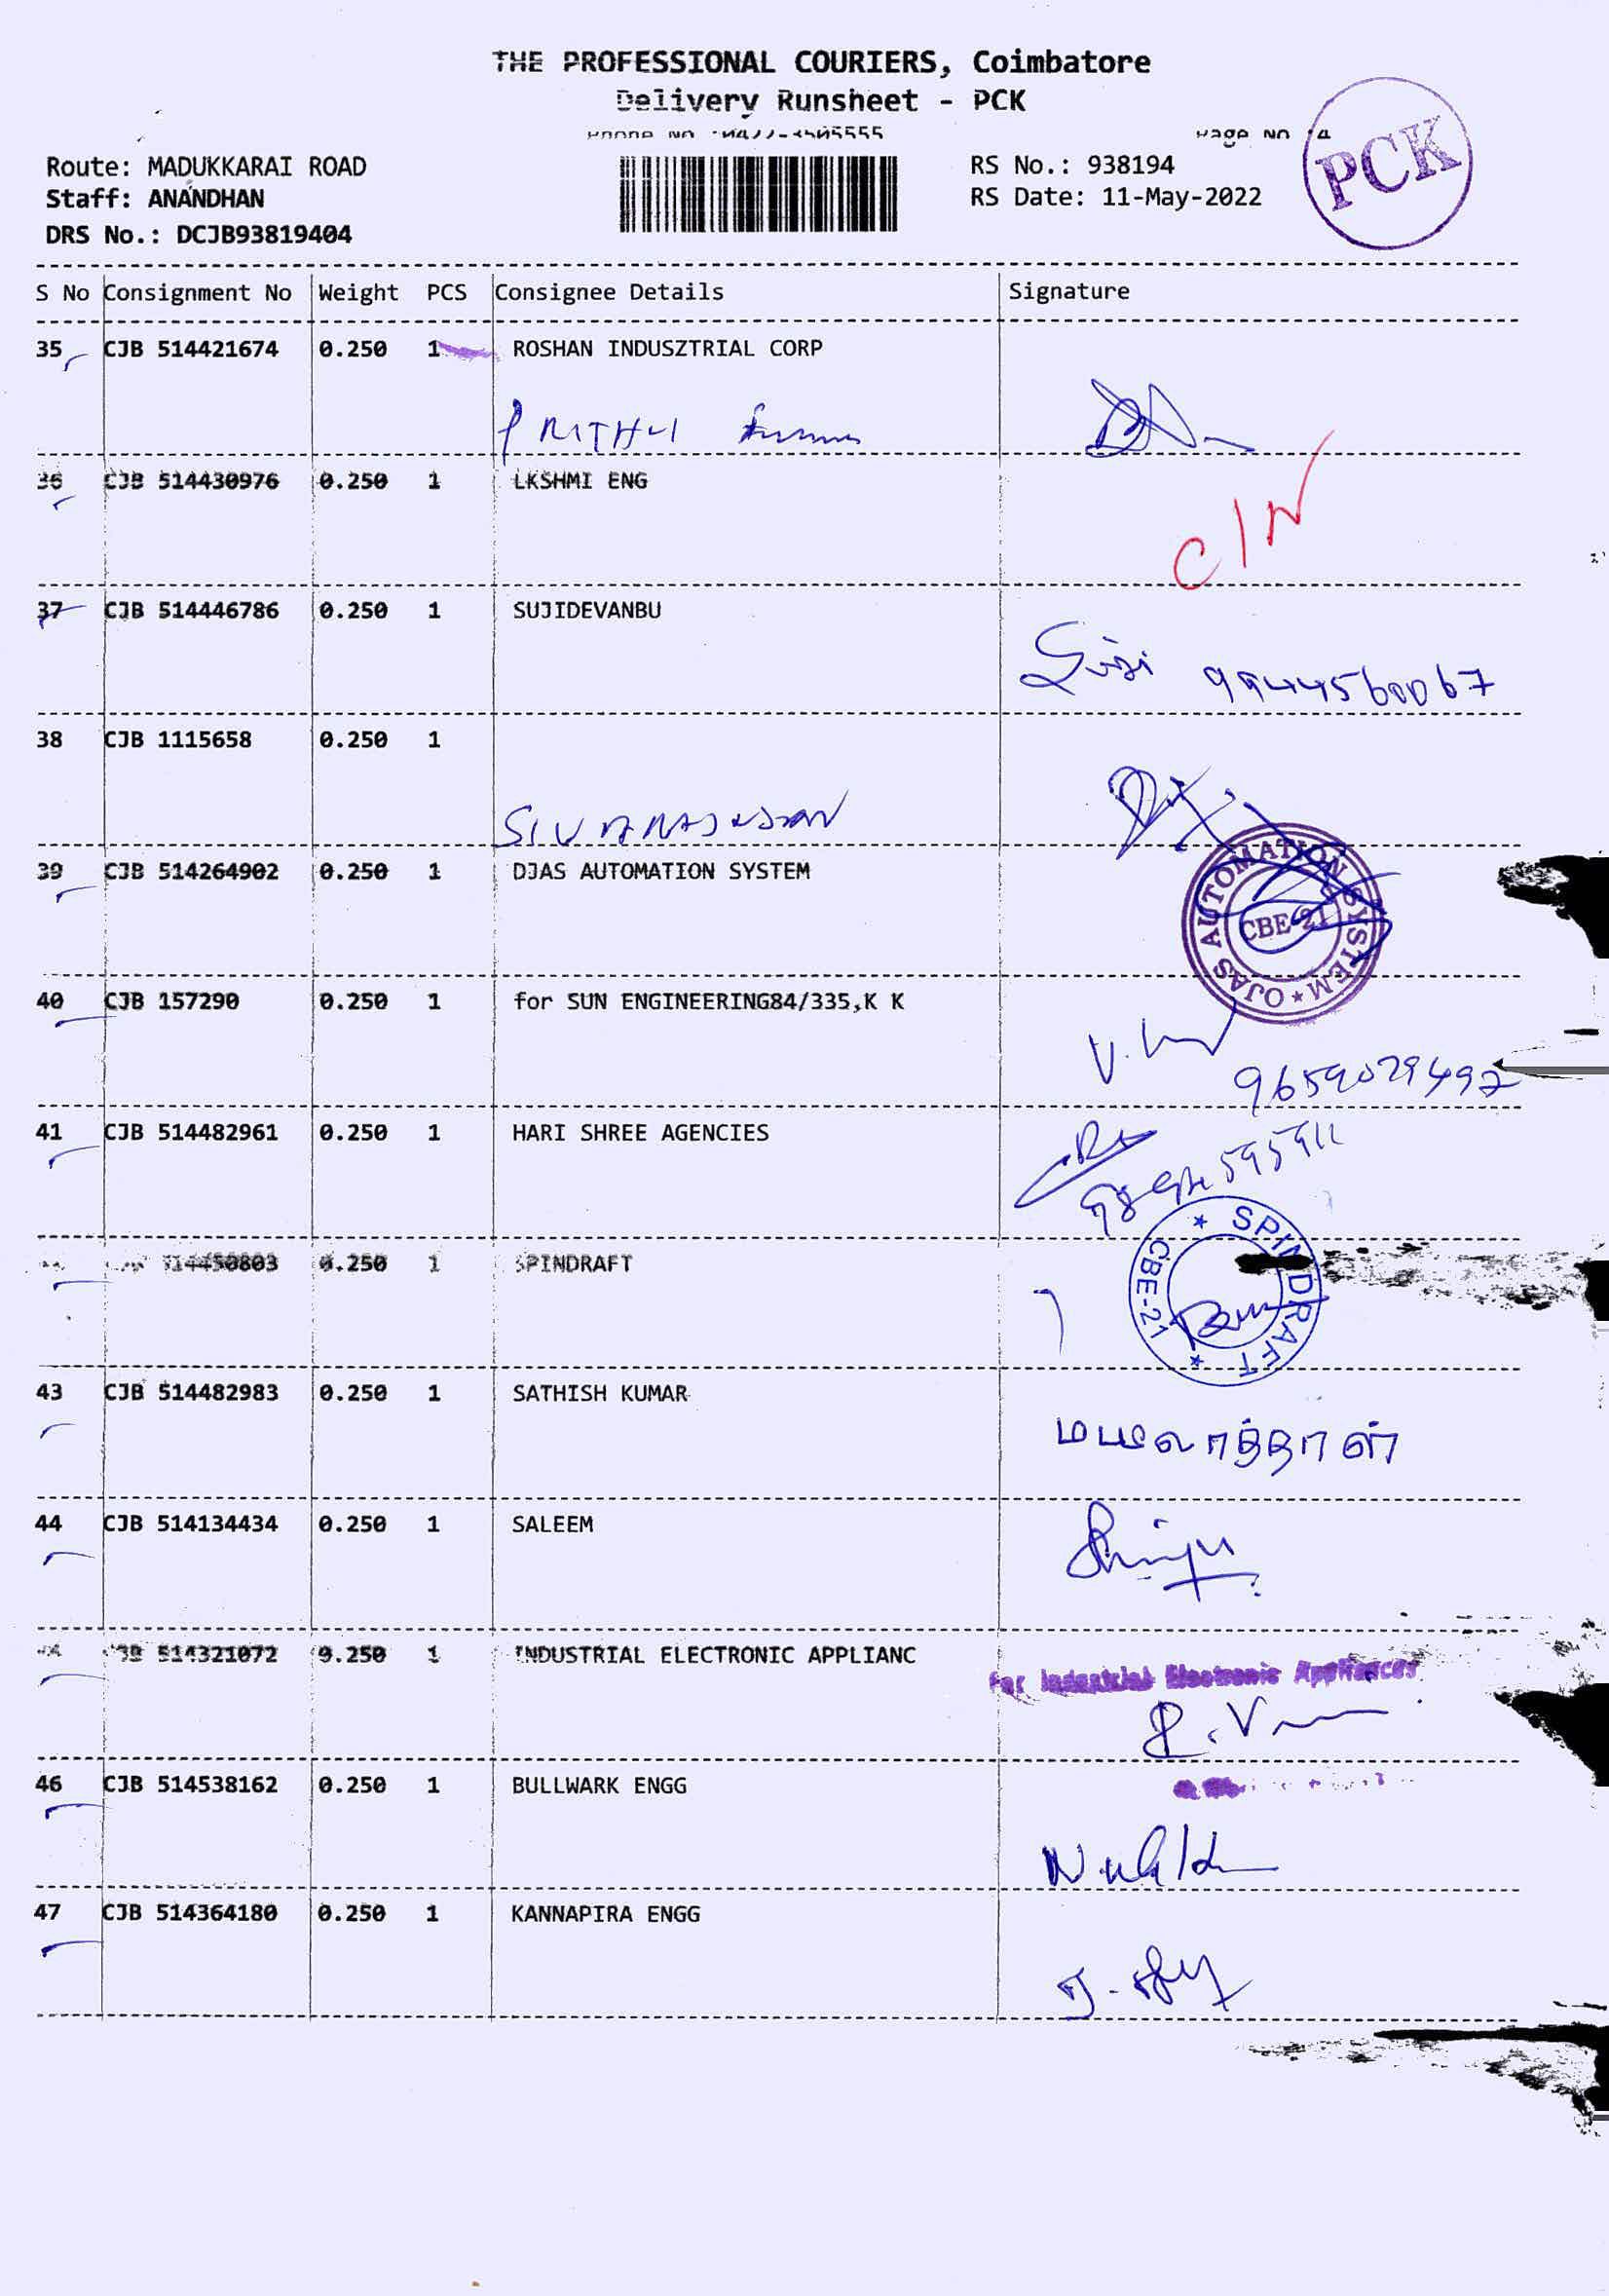 THE PROFESSIONAL COURIERS, Coimbatore
Delivery Runsheet - PCK
Phone No
Page No
PCK
Route: MADUKKARAI ROAD
RS No.: 938194
Staff: ANANDHAN
RS Date: 11-May-2022
DRS No.: DCJB93819404
S No Consignment No Weight PCS Consignee Details Signature
35 CJB 514421674 0.250 1 ROSHAN INDUSZTRIAL CORP
36 CJB 514430976 0.250 1 LKSHMI ENG
C/N
37 CJB 514446786 0.250 1 SUJIDEVANBU
9944560067
38 CJB 1115658 0.250 1
39 CJB 514264902 0.250 1 DJAS AUTOMATION SYSTEM
OJAS AUTOMATION SYSTEM
CBE-21
40 CJB 157290 0.250 1 for SUN ENGINEERING84/335,K K
41 CJB 514482961 0.250 1 HARI SHREE AGENCIES
0.250 1 SPINDRAFT
SPINDRAFT
CBE-21
43 CJB 514482983 0.250 1 SATHISH KUMAR
44 CJB 514134434 0.250 1 SALEEM
CJB 514321072 0.250 1 INDUSTRIAL ELECTRONIC APPLIANC
For Industrial Electronic Appliances
46 CJB 514538162 0.250 1 BULLWARK ENGG
47 CJB 514364180 0.250 1 KANNAPIRA ENGG